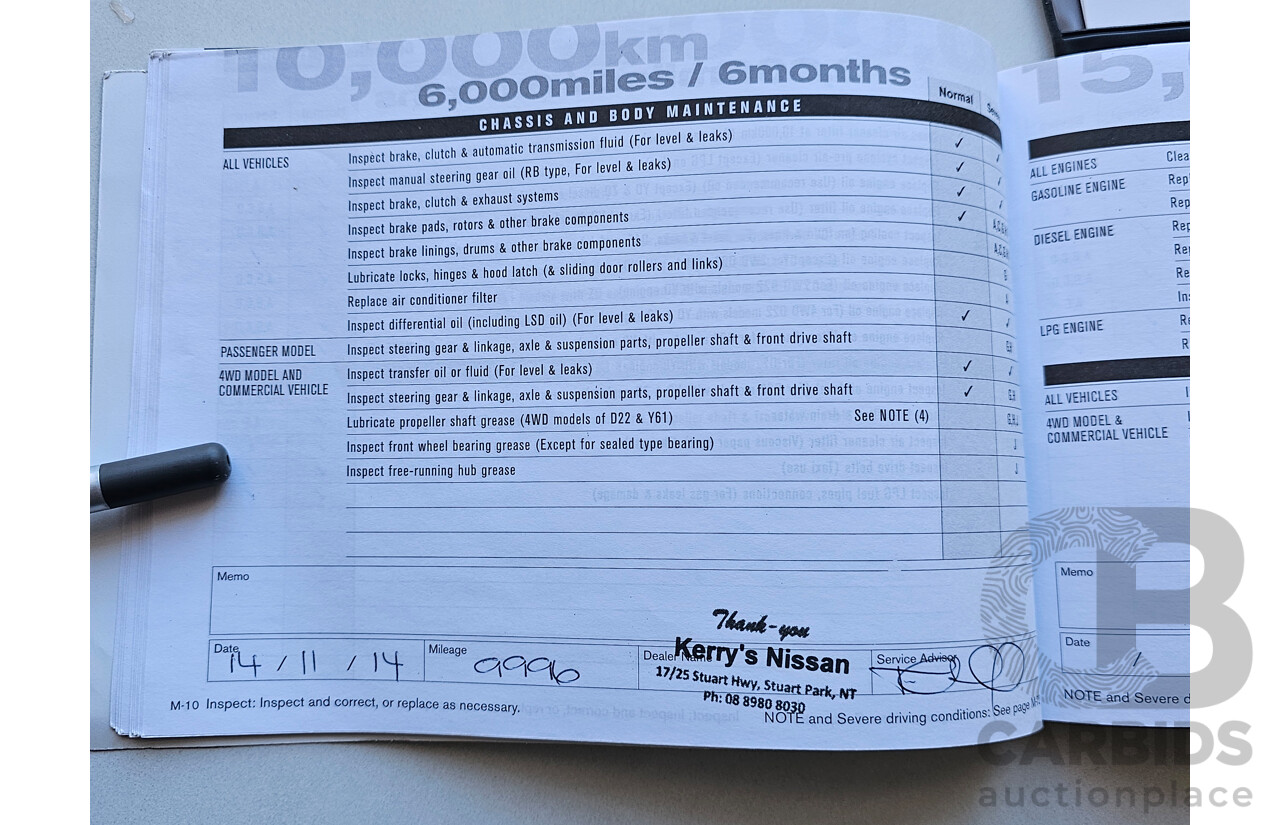 10,000km
6,000miles / 6months
CHASSIS AND BODY MAINTENANCE
Normal
ALL VEHICLES
Inspect brake, clutch & automatic transmission fluid (For level & leaks) ✓
Inspect manual steering gear oil (RB type, For level & leaks) ✓
Inspect brake, clutch & exhaust systems ✓
Inspect brake pads, rotors & other brake components ✓
Inspect brake linings, drums & other brake components
Lubricate locks, hinges & hood latch (& sliding door rollers and links)
Replace air conditioner filter
Inspect differential oil (including LSD oil) (For level & leaks) ✓
PASSENGER MODEL
Inspect steering gear & linkage, axle & suspension parts, propeller shaft & front drive shaft
4WD MODEL AND
COMMERCIAL VEHICLE
Inspect transfer oil or fluid (For level & leaks) ✓
Inspect steering gear & linkage, axle & suspension parts, propeller shaft & front drive shaft ✓
Lubricate propeller shaft grease (4WD models of D22 & Y61) See NOTE (4)
Inspect front wheel bearing grease (Except for sealed type bearing)
Inspect free-running hub grease
Memo
Date 14 / 11 / 14
Mileage 9996
Dealer Name
Thank-you
Kerry's Nissan
17/25 Stuart Hwy, Stuart Park, NT
Ph: 08 8980 8030
Service Advisor
M-10 Inspect: Inspect and correct, or replace as necessary.
NOTE and Severe driving conditions: See page
15,
ALL ENGINES
GASOLINE ENGINE
DIESEL ENGINE
LPG ENGINE
ALL VEHICLES
4WD MODEL &
COMMERCIAL VEHICLE
Memo
Date
NOTE and Severe
CB
CARBIDS
auctionplace